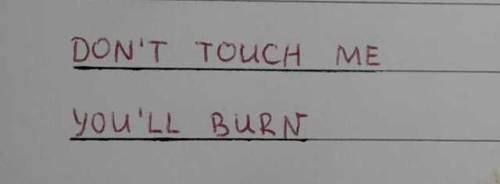 DON'T TOUCH ME
YOU'LL BURN